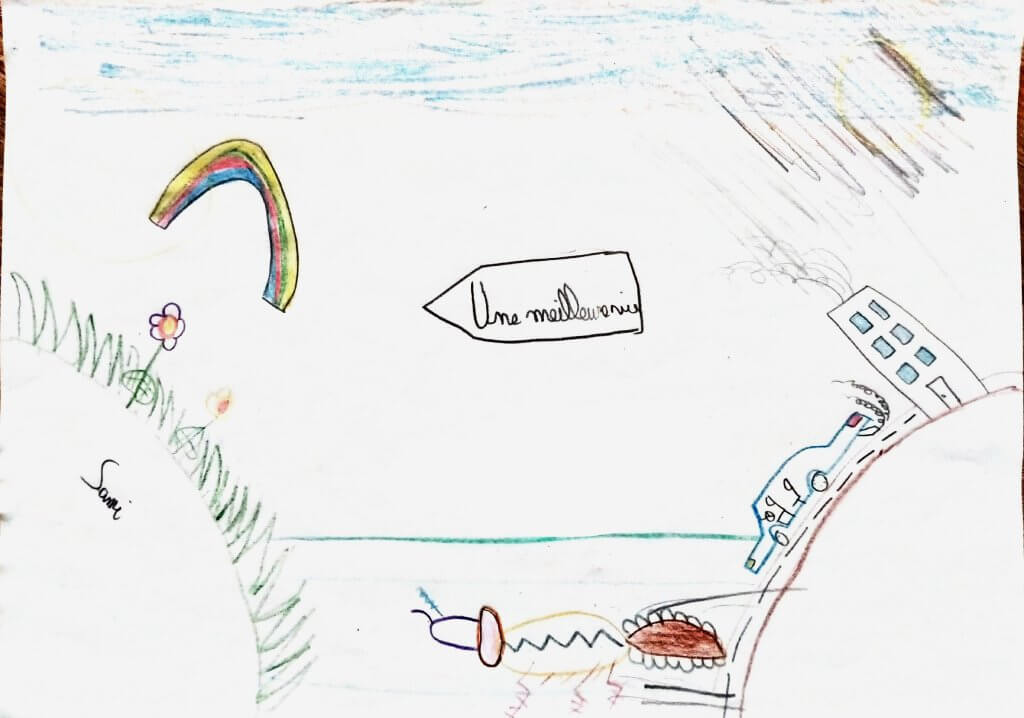 Une meilleure vie
Sami